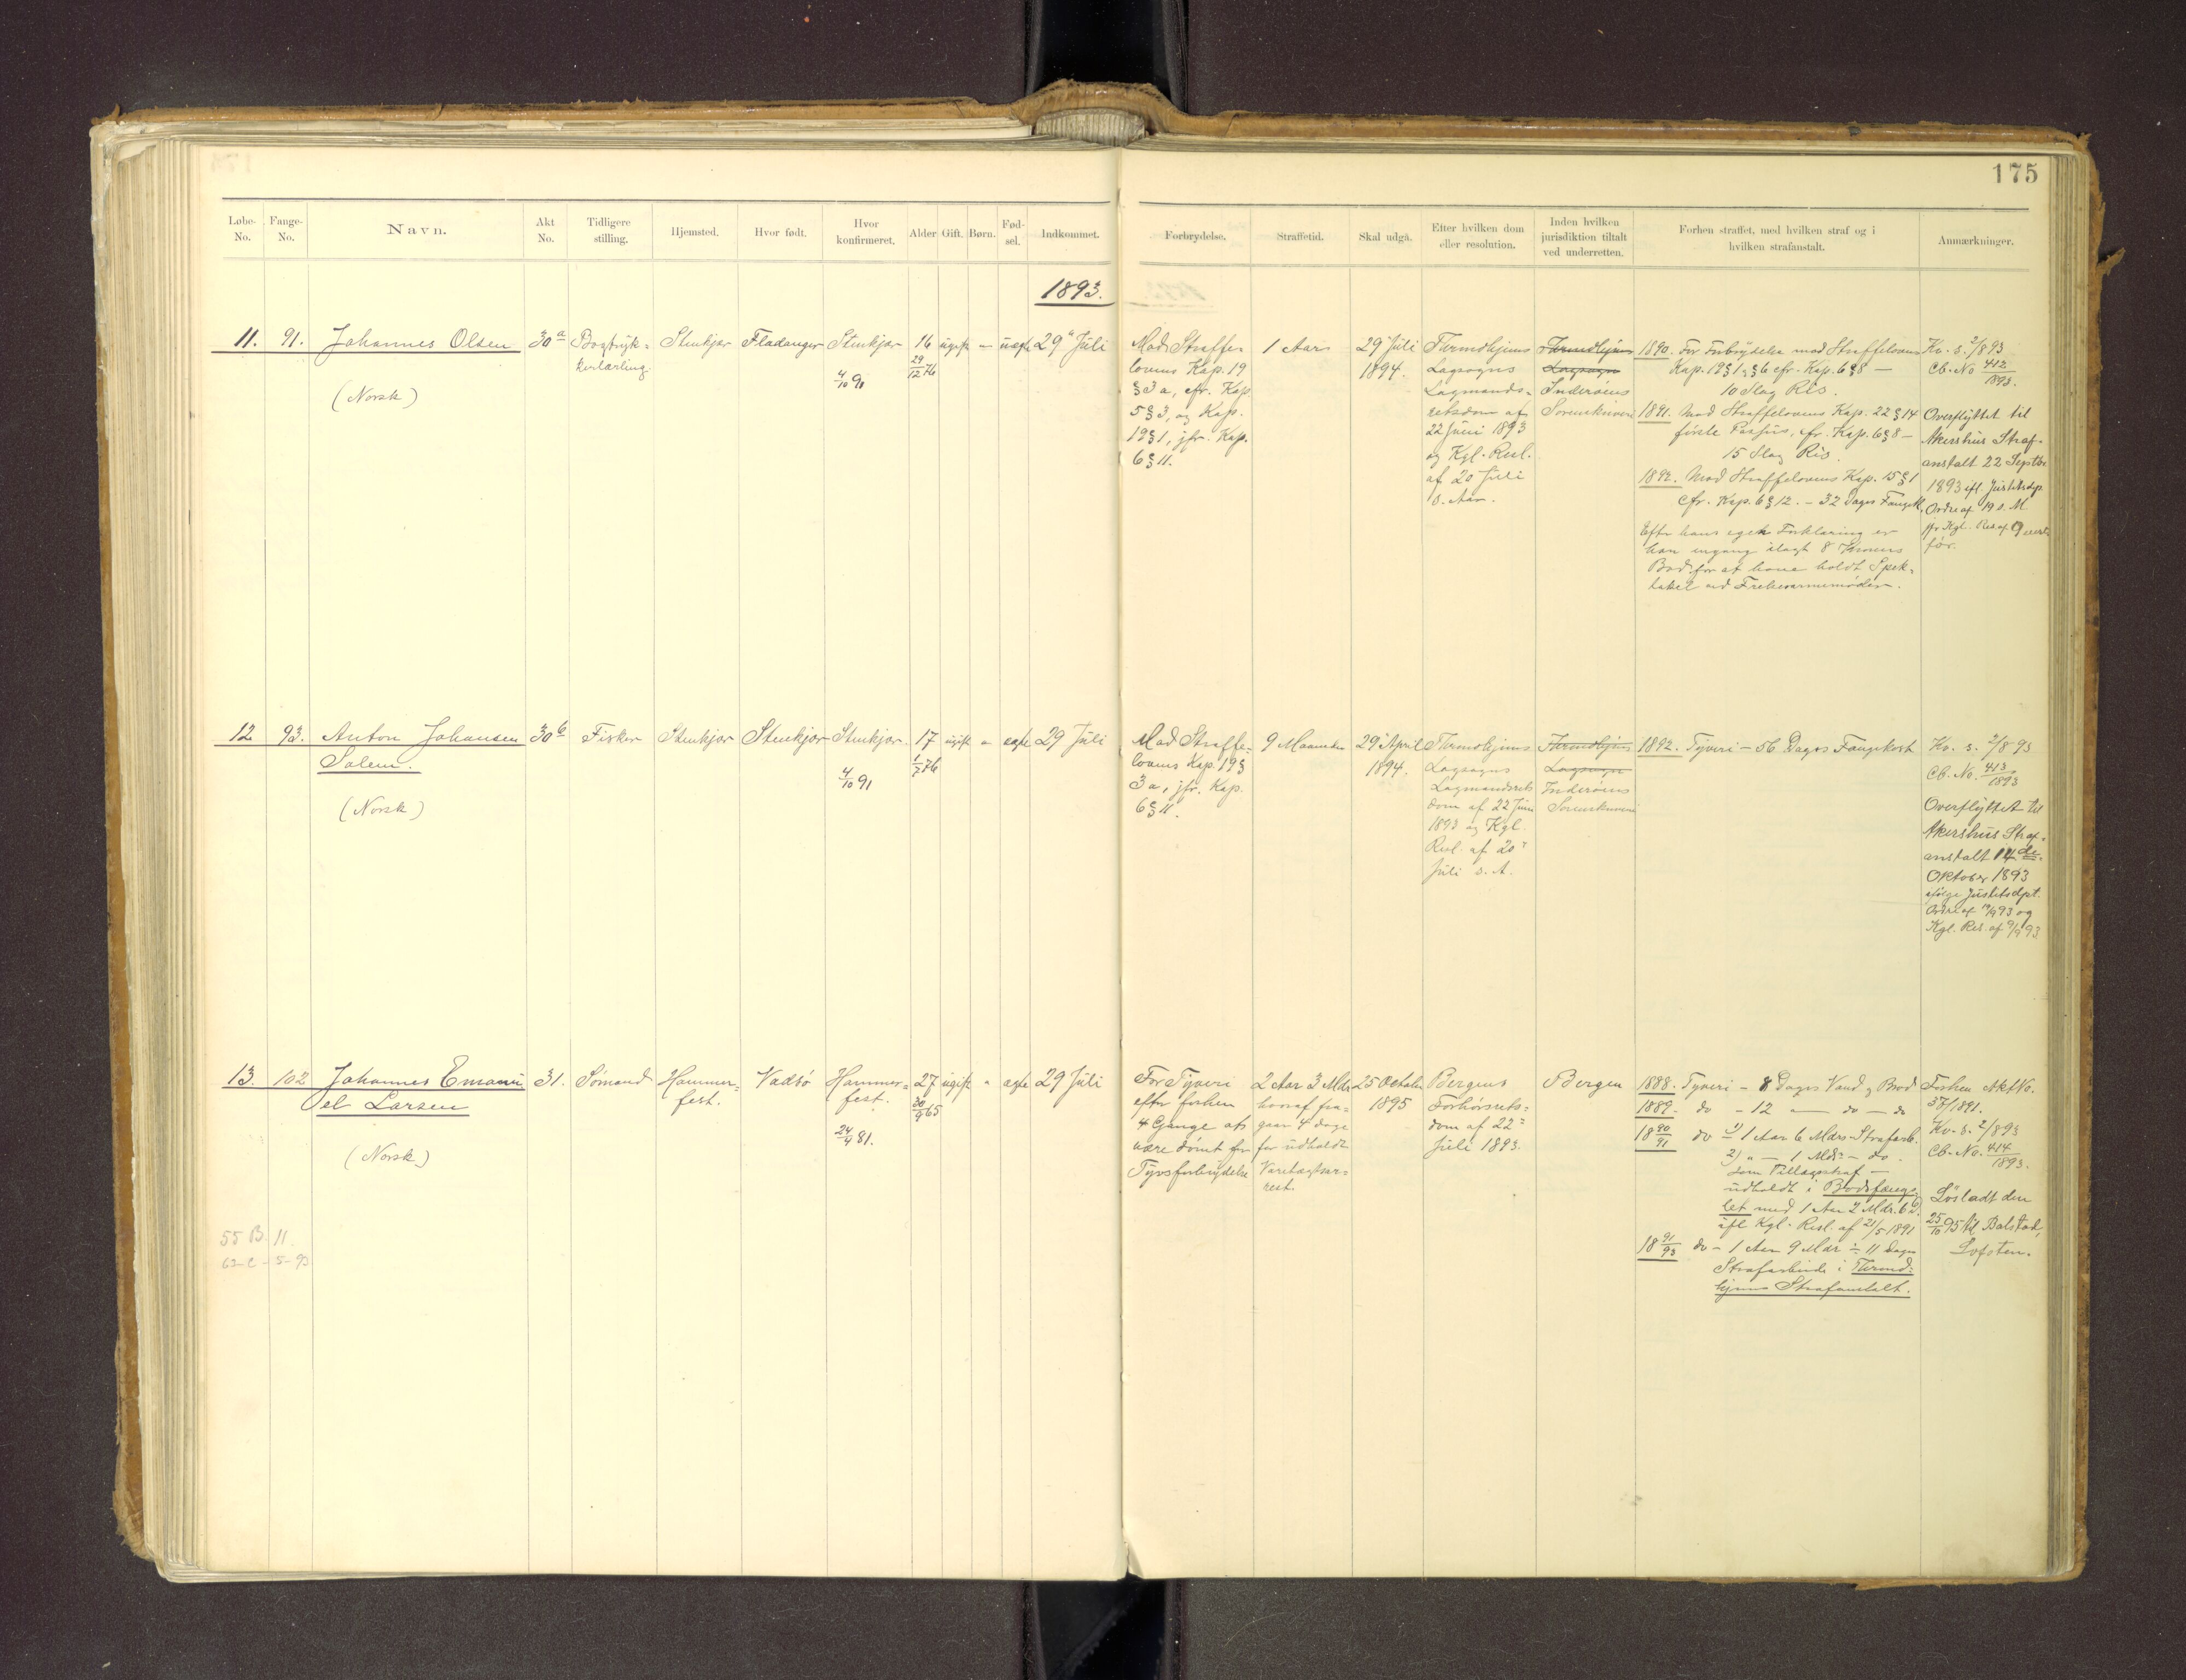 175
Løbe-No.
Fange-No.
Navn.
Akt No.
Tidligere stilling.
Hjemsted.
Hvor født.
Hvor konfirmeret.
Alder
Gift.
Børn.
Fød-sel.
Indkommet.
Forbrydelse.
Straffetid.
Skal udgå.
Efter hvilken dom eller resolution.
Inden hvilken jurisdiktion tiltalt ved underretten.
Forhen straffet, med hvilken straf og i hvilken strafanstalt.
Anmærkninger.
1893.
11.
91.
Johannes Olsen
(Norsk)
30 a
Bogtryk-
kerlærling.
Stenkjær
Fladanger
Stenkjær
4/10 91
16
29/12 76
ugift
"
uægte
29 Juli
Mod Straffe-
lovens Kap. 19
§ 3 a, cfr. Kap.
5 § 3, og Kap.
19 § 1, jfr. Kap.
6 § 11.
1 Aar
29 Juli
1894.
Throndhjems
Lagsogns
Lagmands-
retsdom af
22 Juni 1893
og Kgl. Resl.
af 20 Juli
s. Aar.
Throndhjems
Lagsogn
Inderøens
Sorenskriveri
1890. For Forbrydelse mod Straffelovens
Kap. 19 § 1, § 6 cfr. Kap. 6 § 8 —
10 Slag Ris.
1891. Mod Straffelovens Kap. 22 § 14
første Passus, cfr. Kap. 6 § 8 —
15 Slag Ris.
1892. Mod Straffelovens Kap. 15 § 1
Cfr. Kap. 6 § 12. — 32 Dages Fangek.
Efter hans egen Forklaring er
han engang ilagt 8 Kroners
Bod for at have holdt Spek-
takel ved Frelsesarmemøder.
Kv. s. 2/8 93
Cb. No 412/1893.
Overflyttet til
Akershus Straf-
anstalt 22 Septbr
1893 ifl. Justitsdep.
Ordre af 19 s. M
jfr Kgl. Res. af 9
før.
12
93.
Anton Johansen
Salem.
(Norsk)
30 b
Fisker
Stenkjær
Stenkjær
Stenkjær.
4/10 91
17
1/7 76
ugift
"
ægte
29 Juli
Mod Straffe-
lovens Kap. 19 §
3 a, jfr. Kap.
6 § 11.
9 Maaneder
29 April
1894.
Throndhjems
Lagsogns
Lagmandsrets
dom af 22 Juni
1893 og Kgl.
Resl. af 20
Juli s. A.
Throndhjems
Lagsogn
Inderøens
Sorenskriveri
1892. Tyveri — 56 Dages Fangekost
Kv. s. 2/8 93
Cb. No. 413/1893
Overflyttet til
Akershus Straf-
anstalt 14 de
Oktober 1893
ifølge Justitsdpt.
Ordre af 19/9 93 og
Kgl. Res. af 9/9 93
13.
102
Johannes Emanu-
el Larsen
(Norsk)
31.
Sømand
Hammer-
fest.
Vadsø
Hammer-
fest.
24/9 81.
27
30/9 65
ugift
"
ægte
29 Juli
For Tyveri
efter forhen
4 Gange at
være dømt for
Tyvsforbrydelse
2 Aar 3 Mdr
hvoraf fra-
gaar 4 dage
for udholdt
Varetægtsar-
rest.
25 October
1895
Bergens
Forhørsrets-
dom af 22
Juli 1893.
Bergen
1888. Tyveri — 8 Dages Vand & Brød
1889. do — 12 — do — do
18 90/91 do 1) 1 Aar 6 Mdrs Strafarb.
2) " — 1 Mdr — do.
som Tillægsstraf —
udholdt i Bodsfængs-
let med 1 Aar 2 Mdr. 6 D.
ifl Kgl. Resl. af 21/5 1891
18 91/93 do — 1 Aar 9 Mdr ÷ 11 Dage
Strafarbeide i Thrond-
hjems Strafanstalt.
Forhen Akt No.
37/1891.
Kv. s. 2/8 93
Cb. No. 414/1893.
Løsladt den
25/10 95 til Balstad,
Lofoten.
55 B. 11.
62-C-5-93